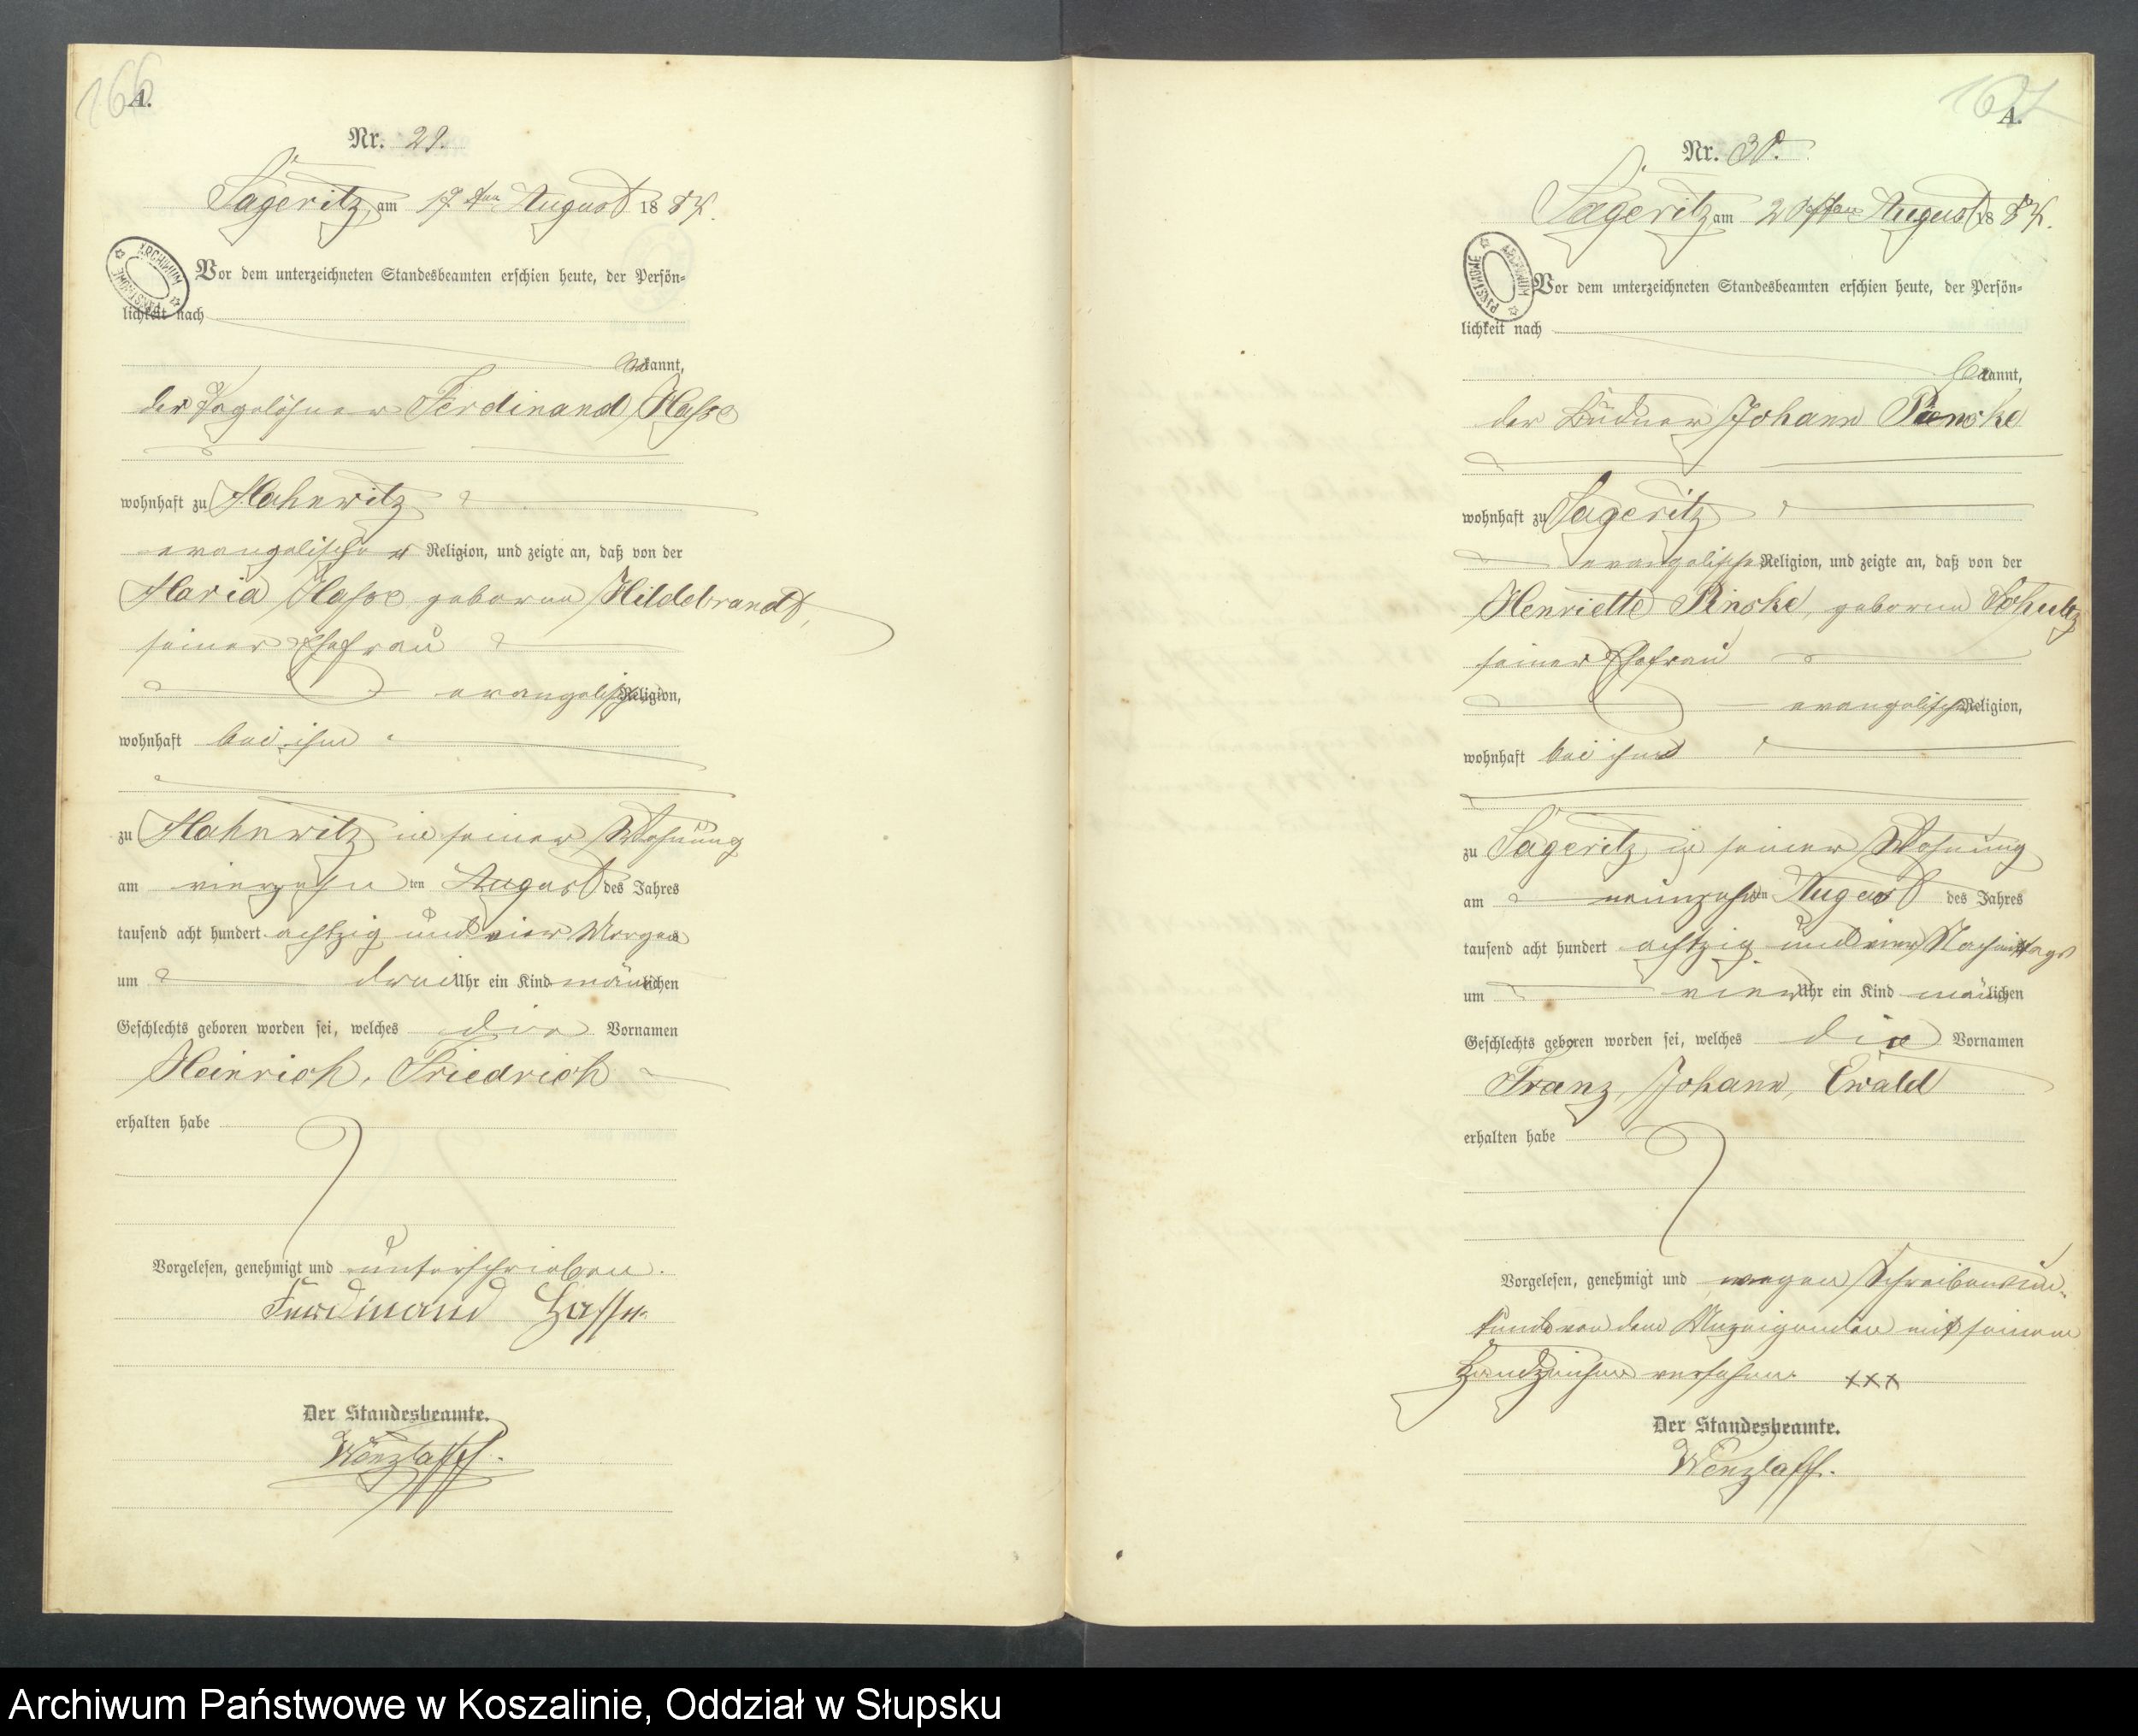 166
A.
Nr. 29.
Sageritz, am 17ten August 1884.
ARCHIWUM PAŃSTWOWE
Vor dem unterzeichneten Standesbeamten erschien heute, der Persön=
lichkeit nach
bekannt,
der Tagelöhner Ferdinand Hasse
wohnhaft zu Mahnwitz
evangelischer Religion, und zeigte an, daß von der
Maria Hasse geborne Hildebrandt,
seiner Ehefrau
evangelischer Religion,
wohnhaft bei ihm
zu Mahnwitz in seiner Wohnung
am vierzehnten August des Jahres
tausend acht hundert achtzig und vier Morgens
um drei Uhr ein Kind männlichen
Geschlechts geboren worden sei, welches die Vornamen
Heinrich, Friedrich
erhalten habe
Vorgelesen, genehmigt und unterschrieben.
Ferdinand Hasse
Der Standesbeamte.
Wenzlaff.
167
A.
Nr. 30.
Sageritz am 20sten August 1884.
ARCHIWUM PAŃSTWOWE
Vor dem unterzeichneten Standesbeamten erschien heute, der Persön=
lichkeit nach
bekannt,
der Büdner Johann Pinske
wohnhaft zu Sageritz
evangelischer Religion, und zeigte an, daß von der
Henriette Pinske, geborne Schulz
seiner Ehefrau
evangelischer Religion,
wohnhaft bei ihm
zu Sageritz in seiner Wohnung
am neunzehnten August des Jahres
tausend acht hundert achtzig und vier Nachmittags
um vier Uhr ein Kind männlichen
Geschlechts geboren worden sei, welches die Vornamen
Franz, Johann, Ewald
erhalten habe
Vorgelesen, genehmigt und wegen Schreibensun=
kunde von dem Anzeigenden mit seinem
Handzeichen versehen. xxx
Der Standesbeamte.
Wenzlaff.
Archiwum Państwowe w Koszalinie, Oddział w Słupsku